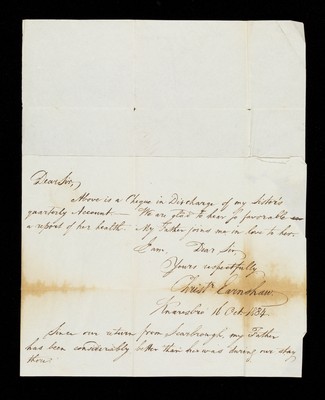 Dear Sir,
Above is a Cheque in Discharge of my Sister's
quarterly Account — We are glad to hear so favorable
a report of her health. My Father joins me in love to her.
I am Dear Sir,
Yours respectfully
Christr. Earnshaw
Knaresbro 16 Oct. 1834
Since our return from Scarbrough, my Father
has been considerably better than he was during our stay
there.